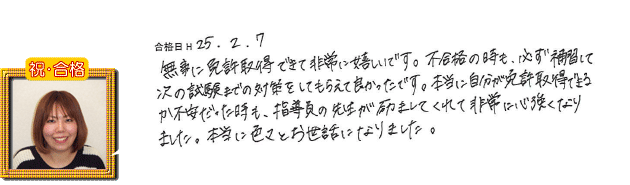 合格日 H 25.2.7
祝・合格
無事に免許取得できて非常に嬉しいです。不合格の時も、必ず補習して
次の試験までの対策をしてもらえて良かったです。本当に自分が免許取得できる
か不安だった時も、指導員の先生が励ましてくれて非常に心強くなり
ました。本当に色々とお世話になりました。